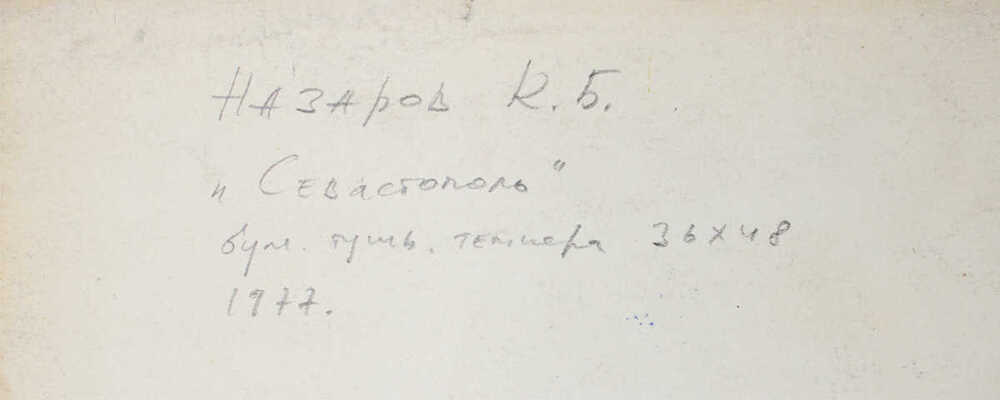 Назаров К.Б.
„Севастополь"
бум. тушь. темпера 36х48
1977.